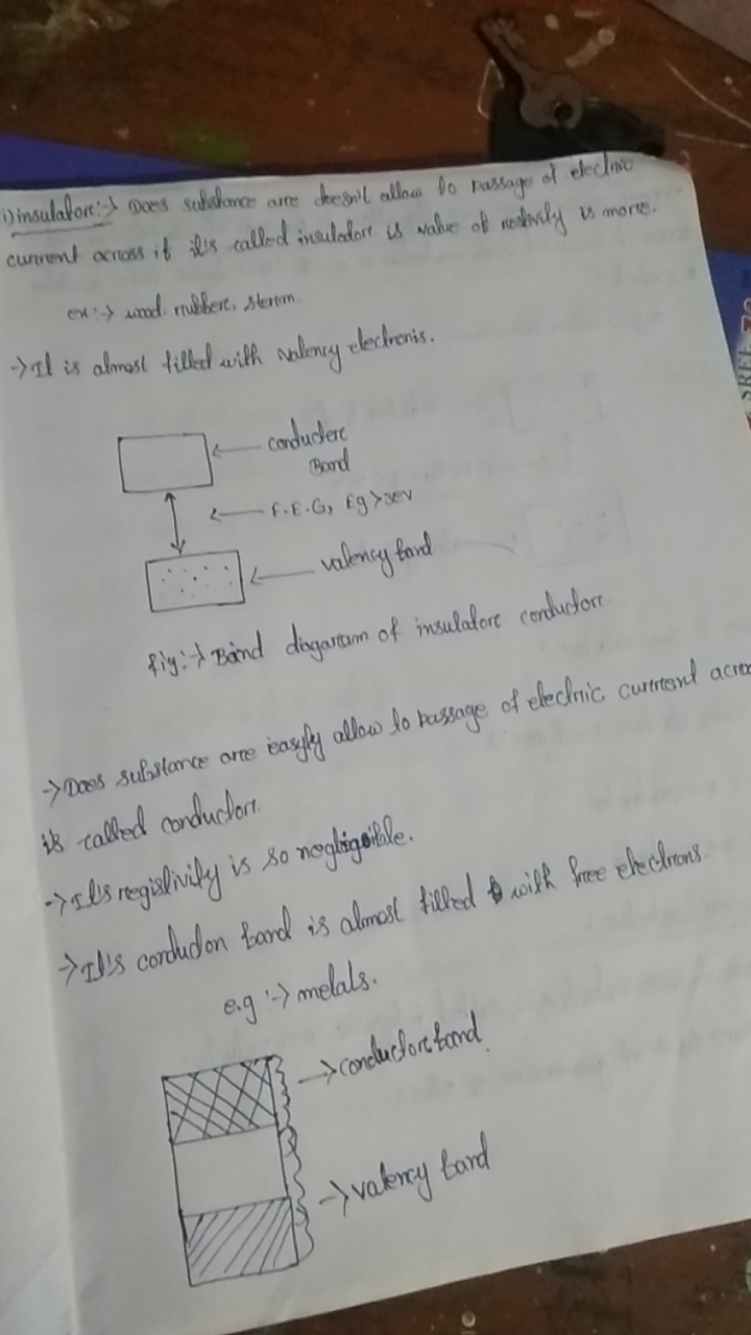 i) insulatore:→ Does substance are doesn't allow to passage of electric
current across it it's called insulatore is value of is more.
ex:→ wood, rubbere,
→It is almost filled with valency electronis.
conductere
Band
F.E.G, Eg>3eV
valency band
fig:→ Band diagaram of insulatore conductore.
→Does substance are easyly allow to passage of electric current acro
is called conductore.
→It's registivity is so neglig­ible.
→It's conducton band is almost filled with free electrons.
e.g :→ metals.
→conductore band
→valency band
SREE